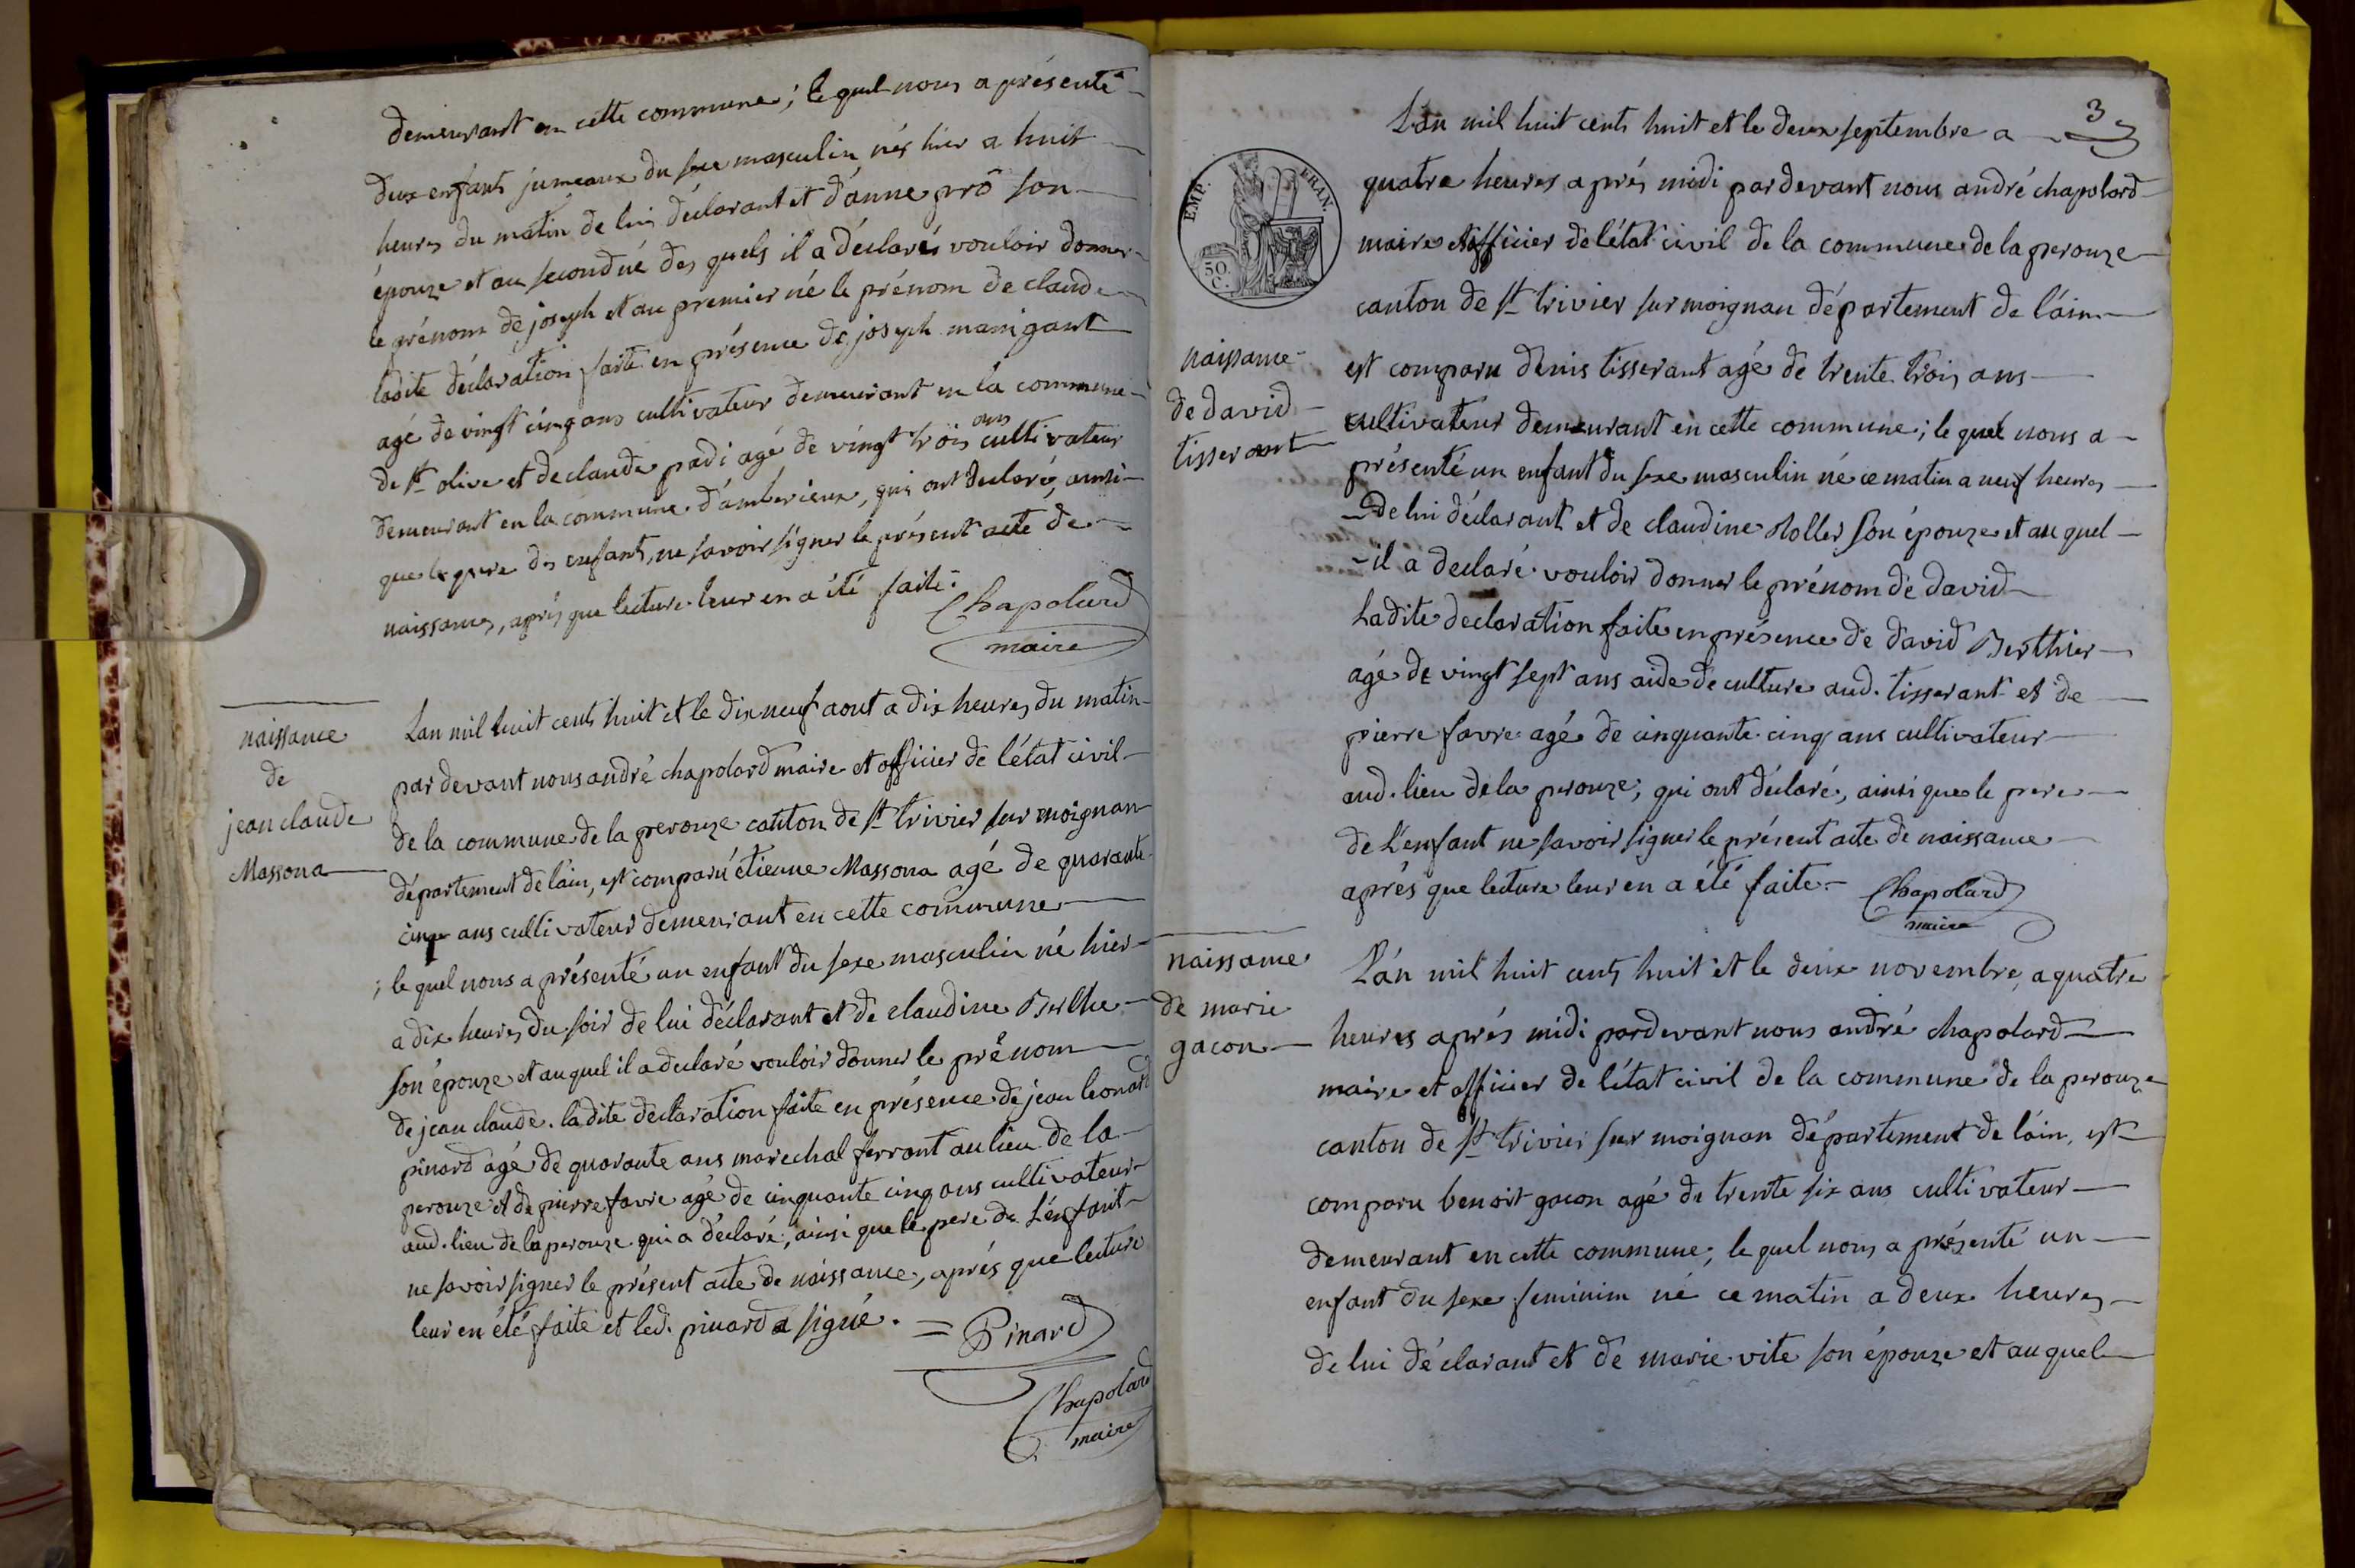 demeurant en cette commune; le quel nous a présenté
deux enfants jumeaux du sexe masculin nés hier a huit
heures du matin de lui déclarant et d'anne prô son
épouze et au second né des quels il a déclarés vouloir donner
le prénom de joseph et au premier né le prénom de claude
ladite déclaration faite en présence de joseph manigant
agé de vingt cinq ans cultivateur demeurant en la commune
de st olive et de claude padi agé de vingt trois ans cultivateur
demeurant en la commune d'amberieux, qui ont declaré, ainsi
que le pere des enfants, ne savoir signer le présent acte de
naissances, aprés que lecture leur en a été faite.
Chapolard
maire
naissance
de
jean claude
Massona
Lan mil huit cents huit et le dix neuf aout a dix heures du matin
par devant nous andré chapolard maire et officier de l'état civil
de la commune de la perouze canton de st trivier sur moignan
département de l'ain, est comparu étienne Massona agé de quarante
cinq ans cultivateur demeurant en cette commune
; le quel nous a présenté un enfant du sexe masculin né hier
a dix heures du soir de lui déclarant et de claudine Berthe
son épouze et au quel il a declaré vouloir donner le prénom
de jean claude. ladite declaration faite en présence de jean leonard
pinard agé de quarante ans marechal ferrant au lieu de la
perouze et de pierre favre agé de cinquante cinq ans cultivateur
aud. lieu de la perouze qui a déclaré, ainsi que le pere de l'enfant
ne savoir signer le présent acte de naissance, aprés que lecture
leur en été faite et led. pinard a signé. = Pinard
Chapolard
maire
3
EMP. FRAN.
50.
C.
L'an mil huit cents huit et le deux septembre a
quatre heures aprés midi par devant nous andré chapolard
maire et officier de l'état civil de la commune de la perouze
canton de st trivier sur moignan département de l'ain
naissance
de david
tisserant
est comparu denis tisserant agé de trente trois ans
cultivateur demeurant en cette commune; le quel nous a
présenté un enfant du sexe masculin né ce matin a neuf heures
de lui déclarant et de claudine son épouze et au quel
il a declaré vouloir donner le prénom de david
Ladite declaration faite en présence de david Berthier
agé de vingt sept ans aide de culture aud. tisserant et de
pierre favre agé de cinquante cinq ans cultivateur
aud. lieu de la perouze; qui ont déclaré, ainsi que le pere
de l'enfant ne savoir signer le présent acte de naissance
aprés que lecture leur en a été faite. Chapolard
maire
naissance
de marie
gacon
L'an mil huit cents huit et le deux novembre, a quatre
heures aprés midi pardevant nous andré chapolard
maire et officier de l'état civil de la commune de la perouze
canton de st trivier sur moignan département de l'ain, est
comparu benoit gacon agé de trente six ans cultivateur
demeurant en cette commune; le quel nous a présenté un
enfant du sexe feminim né ce matin a deux heures
de lui déclarant et de marie vite son épouze et au quel